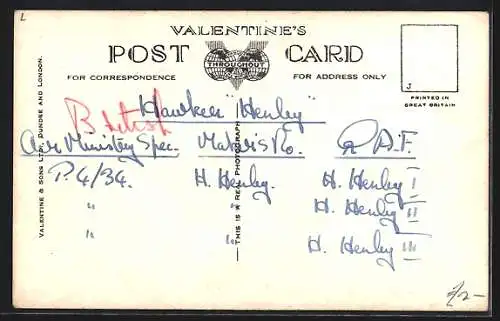 L
VALENTINE'S
POST CARD
THROUGHOUT
FOR CORRESPONDENCE
FOR ADDRESS ONLY
J
PRINTED IN
GREAT BRITAIN
VALENTINE & SONS LTD., DUNDEE AND LONDON.
THIS IS A REAL PHOTOGRAPH
British
"Hawker "Henley"
Air Ministry Spec. Maker's No. R.A.F.
P.4/34. H. Henley. H. Henley I
" " H. Henley II
" " H. Henley III
2/-